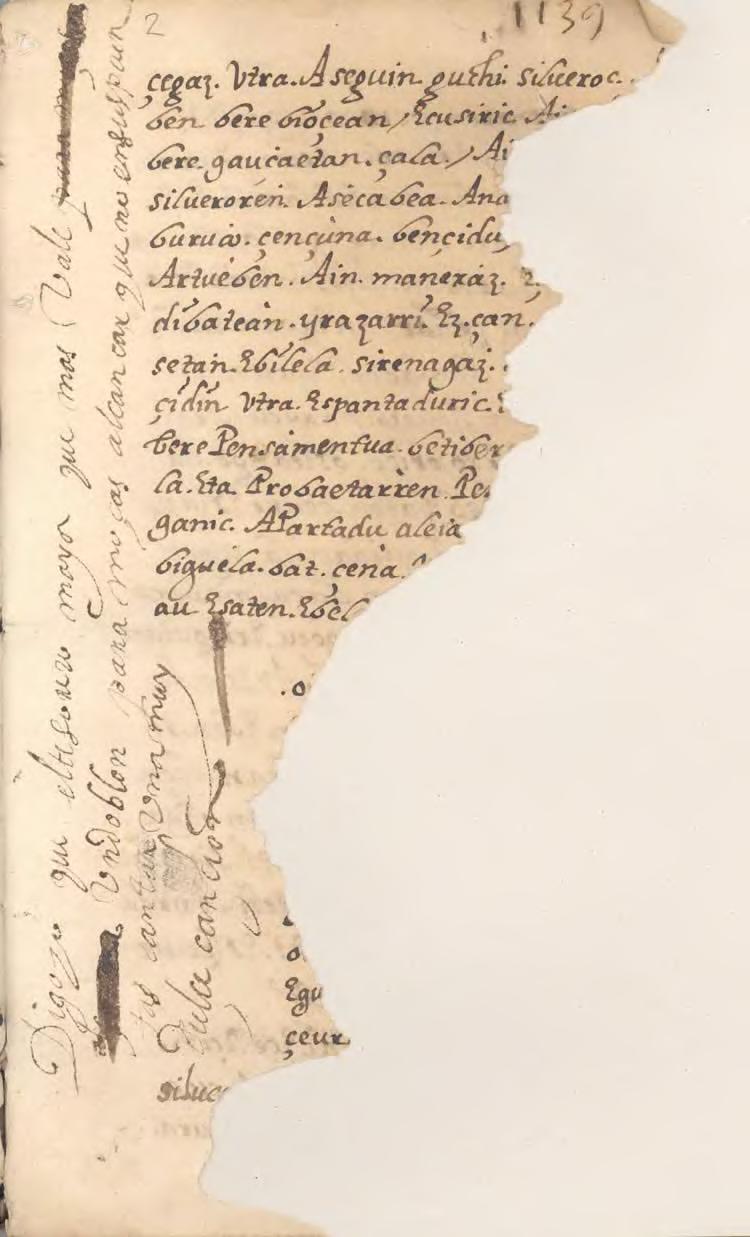 2
1139
cegaz. Vtra. Aseguin guthi silueroc.
ben bere bioçean, Ecusiric Ai
bere gauçaetan. çala. Ai
silueroren. Asecabea. Ana
burua. çençuna. bençidu,
Artueben. Ain. maneraz.
dibatean. yrazarri. Ez. çan.
setan. Ebilela. sirenagaz.
çidin Vtra. Espantaduric.
bere Pensamentua. betiber
la. Eta Probaetarren. Pe
ganic. APartadu aleia
biguela. bat. çena.
au Esaten. Ebel
.o
o
Egu
çeur
silue
Digo yo que el tesoro mayor que mas Vale
Vn doblon para moças alcançar que no en su pain
cantar Vna muy
Dulce cancion